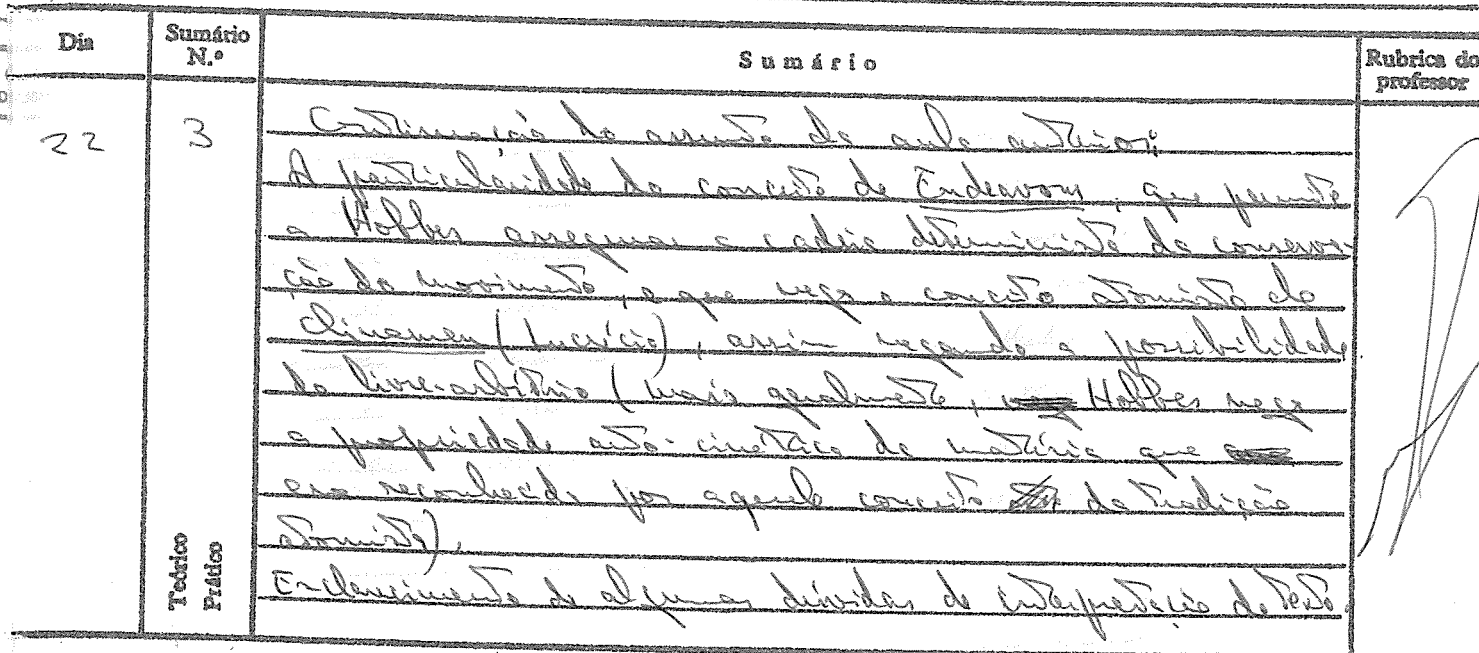 Dia
Sumário N.º
Sumário
Rubrica do professor
22
3
Continuação do assunto da aula anterior:
A particularidade do conceito de Endeavour, que permite
a Hobbes assegurar a cadeia determinista da conserva-
ção do movimento, e que nega o conceito atomista de
clinamen (Lucrécio), assim negando a possibilidade
do livre-arbítrio (mais geralmente, Hobbes nega
a propriedade auto-cinética da matéria que
era reconhecida por aquele conceito da tradição
atomista).
Esclarecimento de algumas dúvidas de interpretação do texto.
Teórico
Prático